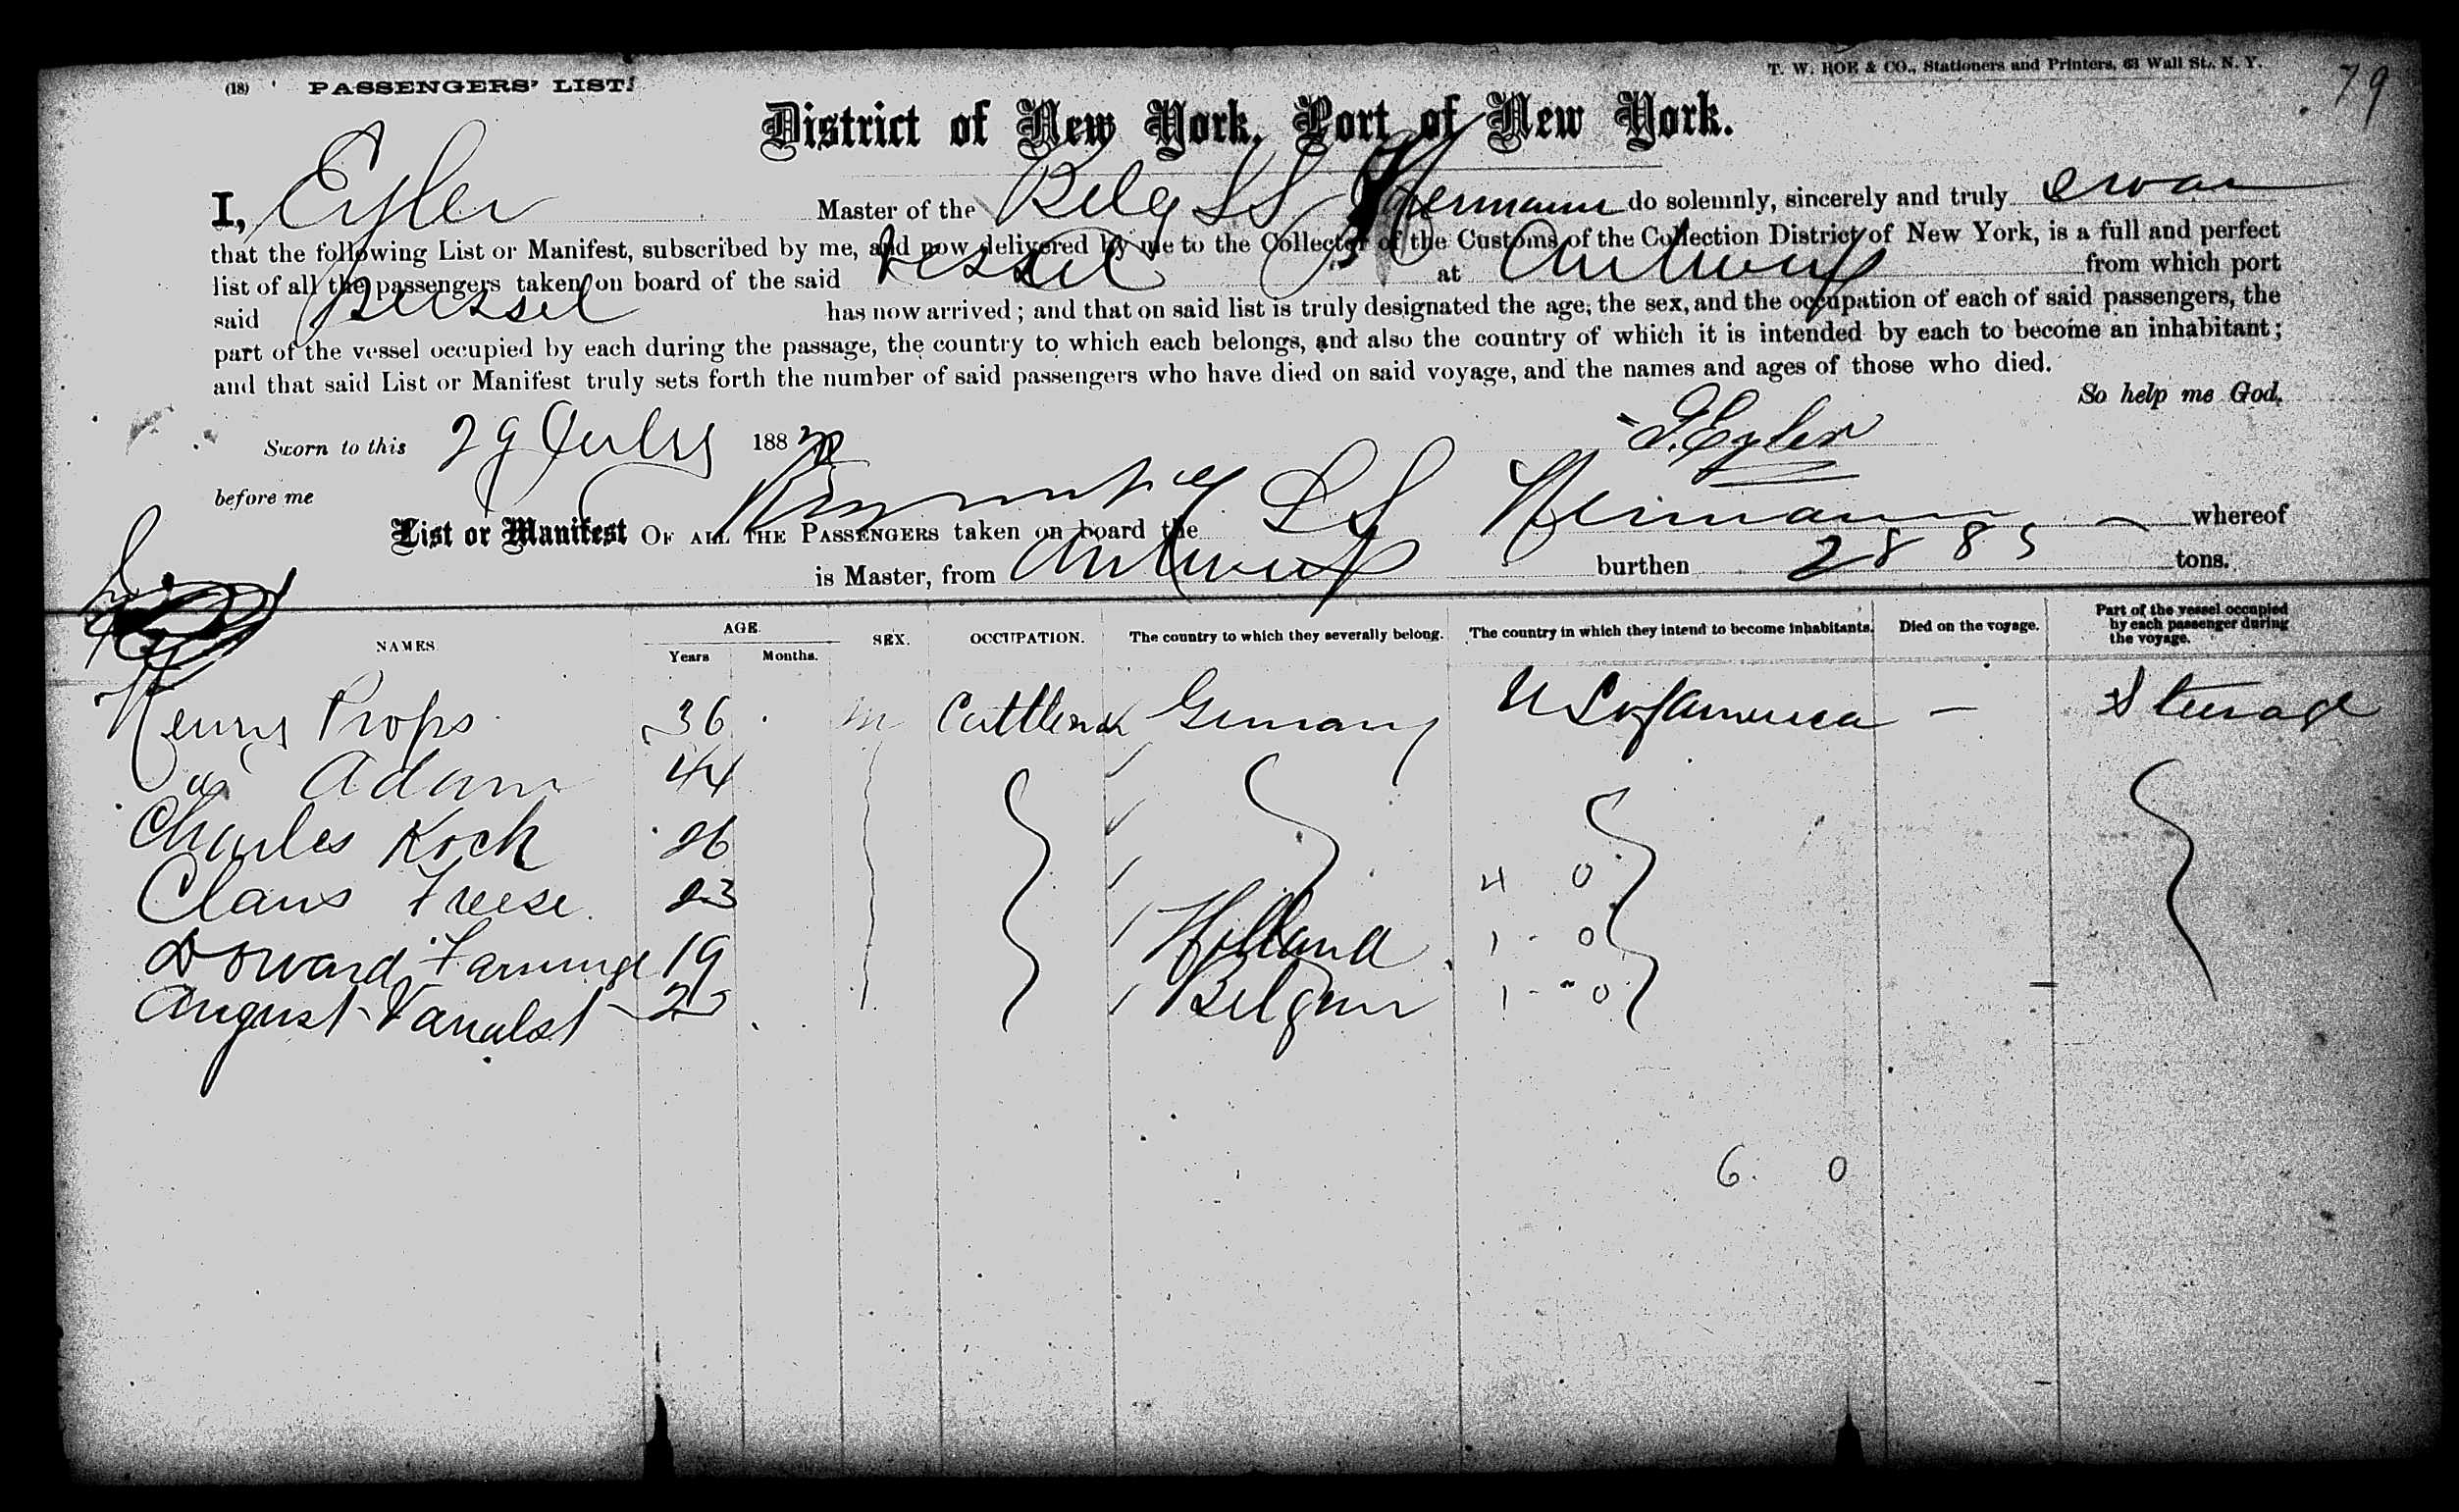 (18) PASSENGERS' LIST.
T. W. ROE & CO., Stationers and Printers, 63 Wall St., N. Y.
79
District of New York, Port of New York.
I, Eyler Master of the Belg SS Hermann do solemnly, sincerely and truly swear
that the following List or Manifest, subscribed by me, and now delivered by me to the Collector of the Customs of the Collection District of New York, is a full and perfect
list of all the passengers taken on board of the said Vessel at Antwerp from which port
said Vessel has now arrived; and that on said list is truly designated the age, the sex, and the occupation of each of said passengers, the
part of the vessel occupied by each during the passage, the country to which each belongs, and also the country of which it is intended by each to become an inhabitant;
and that said List or Manifest truly sets forth the number of said passengers who have died on said voyage, and the names and ages of those who died.
So help me God.
Sworn to this 29 July 188
before me
List or Manifest OF ALL THE PASSENGERS taken on board the SS Hermann whereof
is Master, from Antwerp burthen 2885 tons.
NAMES AGE. Years Months. SEX. OCCUPATION. The country to which they severally belong. The country in which they intend to become inhabitants. Died on the voyage. Part of the vessel occupied by each passenger during the voyage.
Henry Props 36 m Germany U S of America — Steerage
Adam 44
Charles Kock 26
Claus Freese 23 4 0
19 Holland 1 - 0
August Belgium 1 - 0
6 0